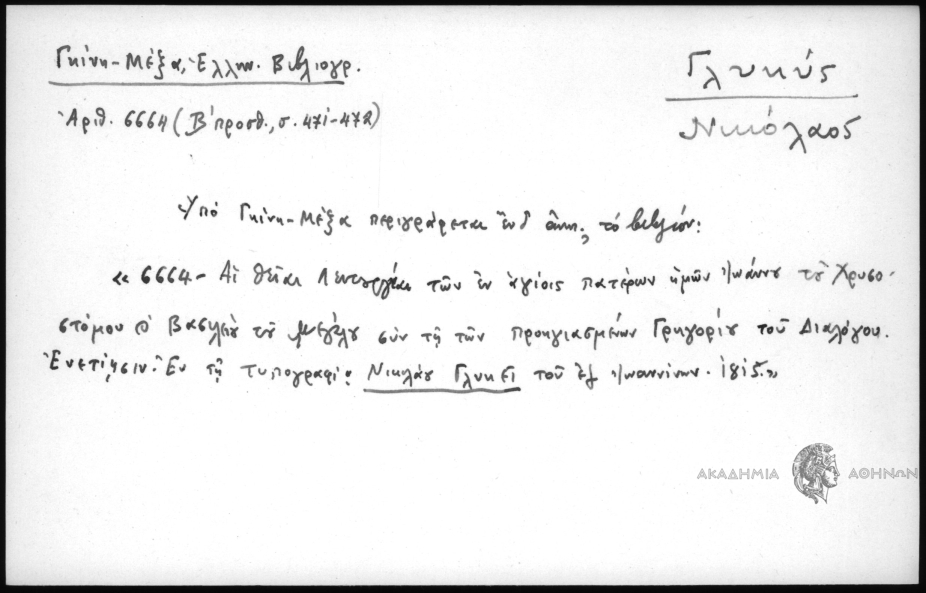 Γκίνη-Μέξα, Ἑλλην. Βιβλιογρ.
Ἀριθ. 6664 (Β' προσθ., σ. 471-472)
Γλυκύς
Νικόλαος
Ὑπό Γκίνη-Μέξα περιγράφεται τό βιβλίον:
« 6664 - Αἱ θεῖαι Λειτουργίαι τῶν ἐν ἁγίοις πατέρων ἡμῶν Ἰωάννου τοῦ Χρυσο-
στόμου Βασιλείου τοῦ Μεγάλου σύν τῇ τῶν προηγιασμένων Γρηγορίου τοῦ Διαλόγου.
Ἐνετίῃσιν. Ἐν τῇ τυπογραφίᾳ Νικολάου Γλυκεῖ τοῦ ἐξ Ἰωαννίνων. 1815.»
ΑΚΑΔΗΜΙΑ ΑΘΗΝΩΝ